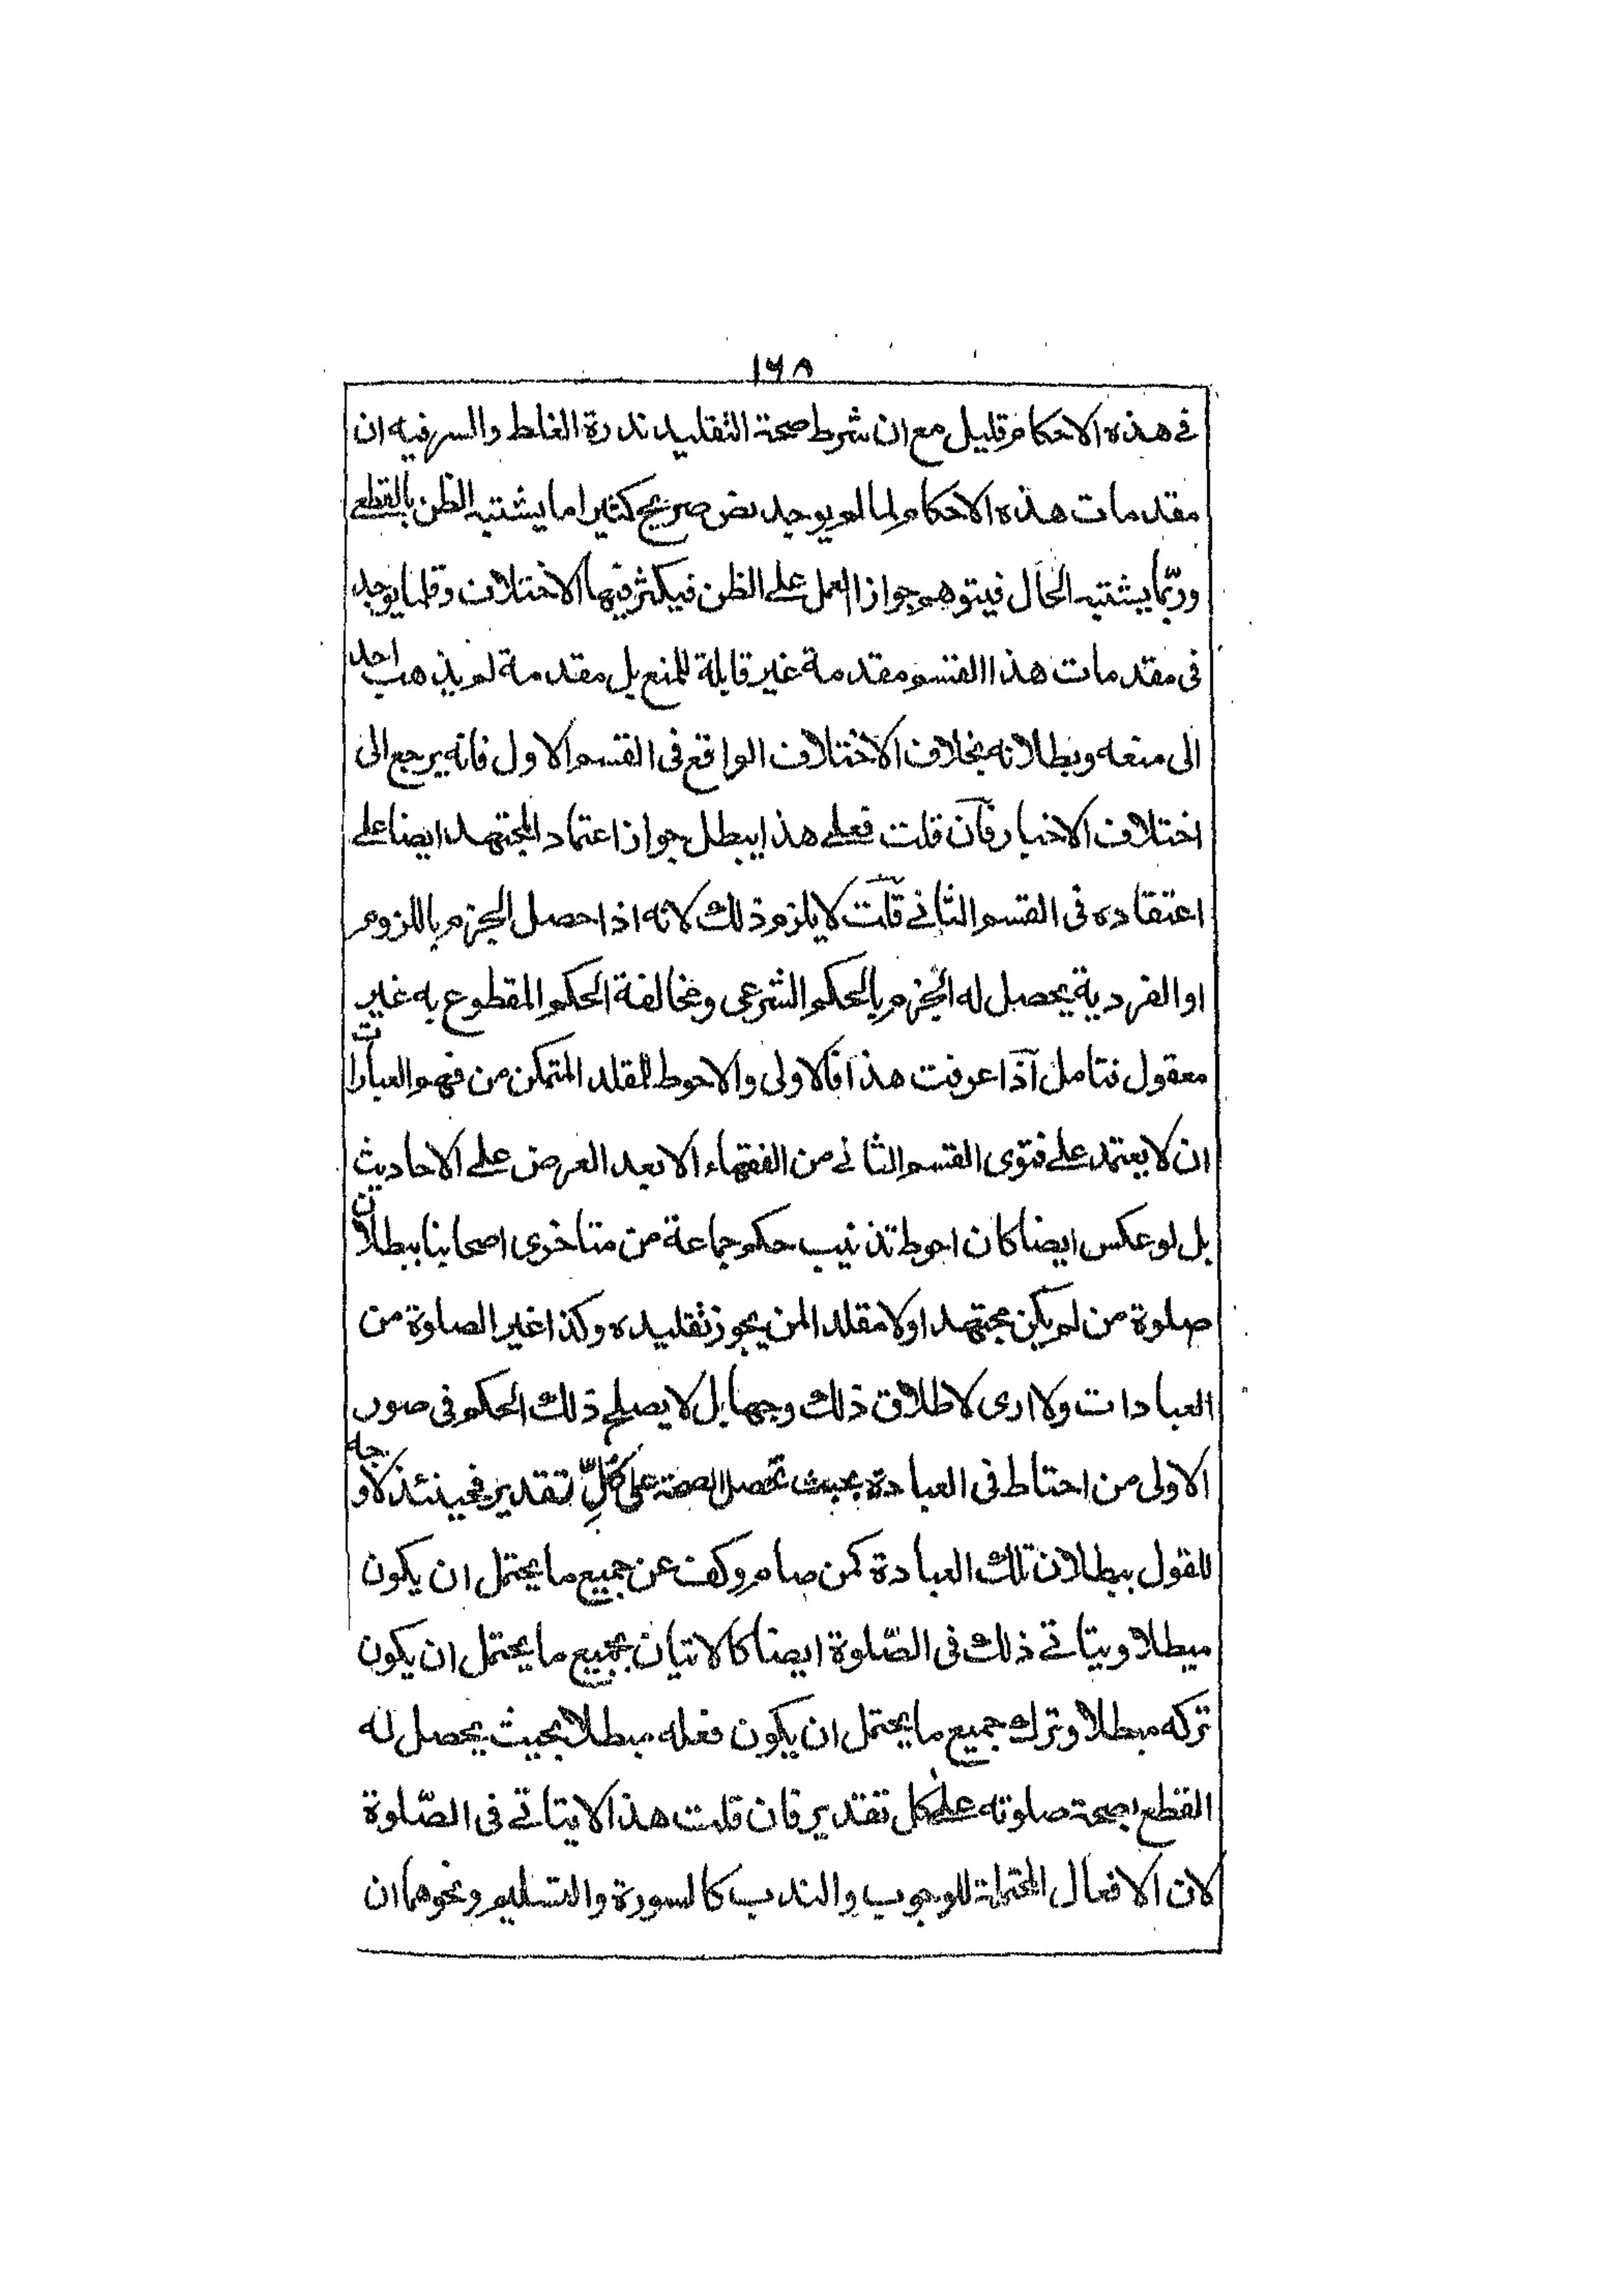 ١٦٨
فى هذه الاحكام قليل مع ان شرط صحة التقليد ندرة الغلط والسر فيه ان
مقدمات هذه الاحكام لما لم يوجد نص صريح كثيرا ما يشتبه الظن بالقطع
وربّما يشتبه الحال فيتوهم جواز العمل على الظن فيكثر فيها الاختلاف وقلما يوجد
فى مقدمات هذا القسم مقدمة غير قابلة للمنع بل مقدمة لم يذهب احد
الى منعه وبطلانه بخلاف الاختلاف الواقع فى القسم الاول فانه يرجع الى
اختلاف الاخبار فآن قلت فعلى هذا يبطل جواز اعتماد المجتهد ايضا على
اعتقاده فى القسم الثانى قلت لا يلزم ذلك لانه اذا حصل الجزم باللزوم
او الفردية يحصل له الجزم بالحكم الشرعى ومخالفة الحكم المقطوع به غير
معقول فتامل آذا عرفت هذا فالاولى والاحوط للمقلد المتمكن من فهم العبارات
ان لا يعتمد على فتوى القسم الثانى من الفقهاء الا بعد العرض على الاحاديث
بل لو عكس ايضا كان احوط تذنيب حكم جماعة من متاخرى اصحابنا ببطلان
صلوة من لم يكن مجتهدا ولا مقلدا لمن يجوز تقليده وكذا غير الصلوة من
العبادات ولا ارى لاطلاق ذلك وجها بل لا يصلح ذلك الحكم فى صور
الاولى من احتاط فى العبادة بحيث تحصل الصحة على كُلِّ تقدير فحينئذ لا وجه
للقول ببطلان تلك العبادة كمن صام وكف عن جميع ما يحتمل ان يكون
مبطلا ويتاتى ذلك فى الصّلوة ايضا كالاتيان بجميع ما يحتمل ان يكون
تركه مبطلا وترك جميع ما يحتمل ان يكون فعله مبطلا بحيث يحصل له
القطع بصحة صلوته على كل تقدير فان قلت هذا لا يتاتى فى الصّلوة
لان الافعال المحتملة للوجوب والندب كالسورة والتسليم ونحوهما ان